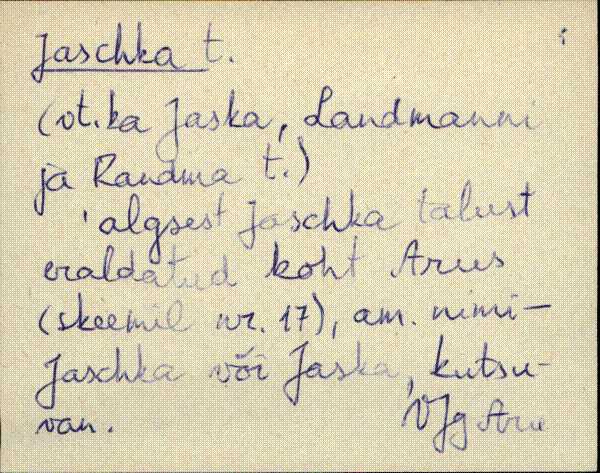 Jaschka t.
(vt. ka Jaska, Landmanni
ja Randma t.)
'algsest Jaschka talust
eraldatud koht Arus
(skeemil nr. 17), am. nimi-
Jaschka või Jaska, kutsu-
van.
VJg Aru